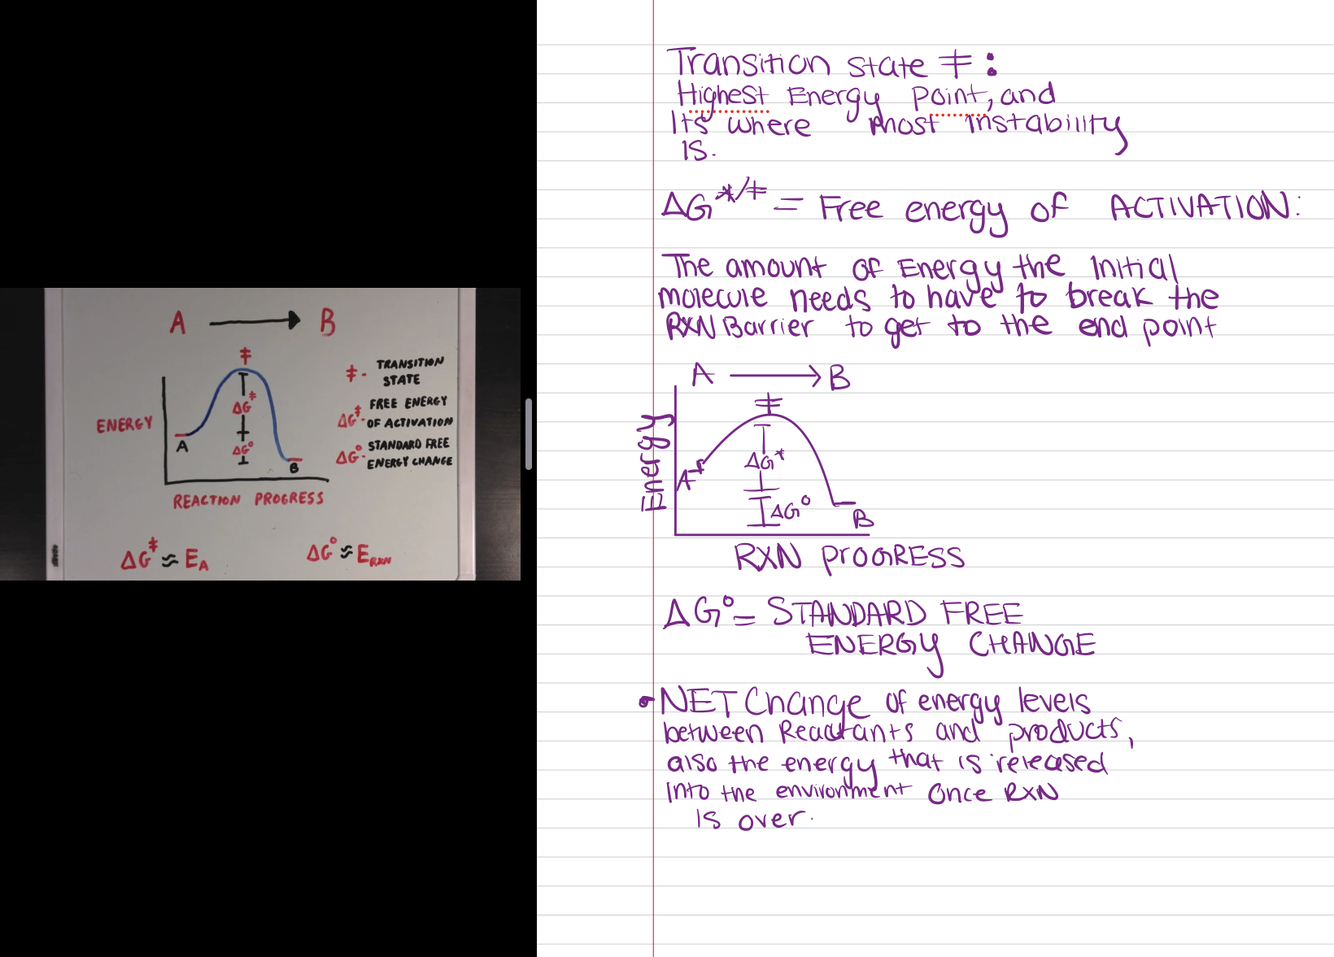 A → B
‡
ENERGY
ΔG‡
ΔG°
A
B
REACTION PROGRESS
‡ - TRANSITION
STATE
ΔG‡- FREE ENERGY
OF ACTIVATION
ΔG°- STANDARD FREE
ENERGY CHANGE
ΔG‡ ≈ EA
ΔG° ≈ ERXN
Transition state ‡ :
Highest Energy Point, and
Its where most instability
is.
ΔG*/‡ = Free energy of ACTIVATION:
The amount of Energy the initial
molecule needs to have to break the
RXN Barrier to get to the end point
A → B
‡
Energy
ΔG*
A
ΔG°
B
RXN PROGRESS
ΔG° = STANDARD FREE
ENERGY CHANGE
• NET Change of energy levels
between Reactants and products,
also the energy that is released
into the environment once RXN
is over.